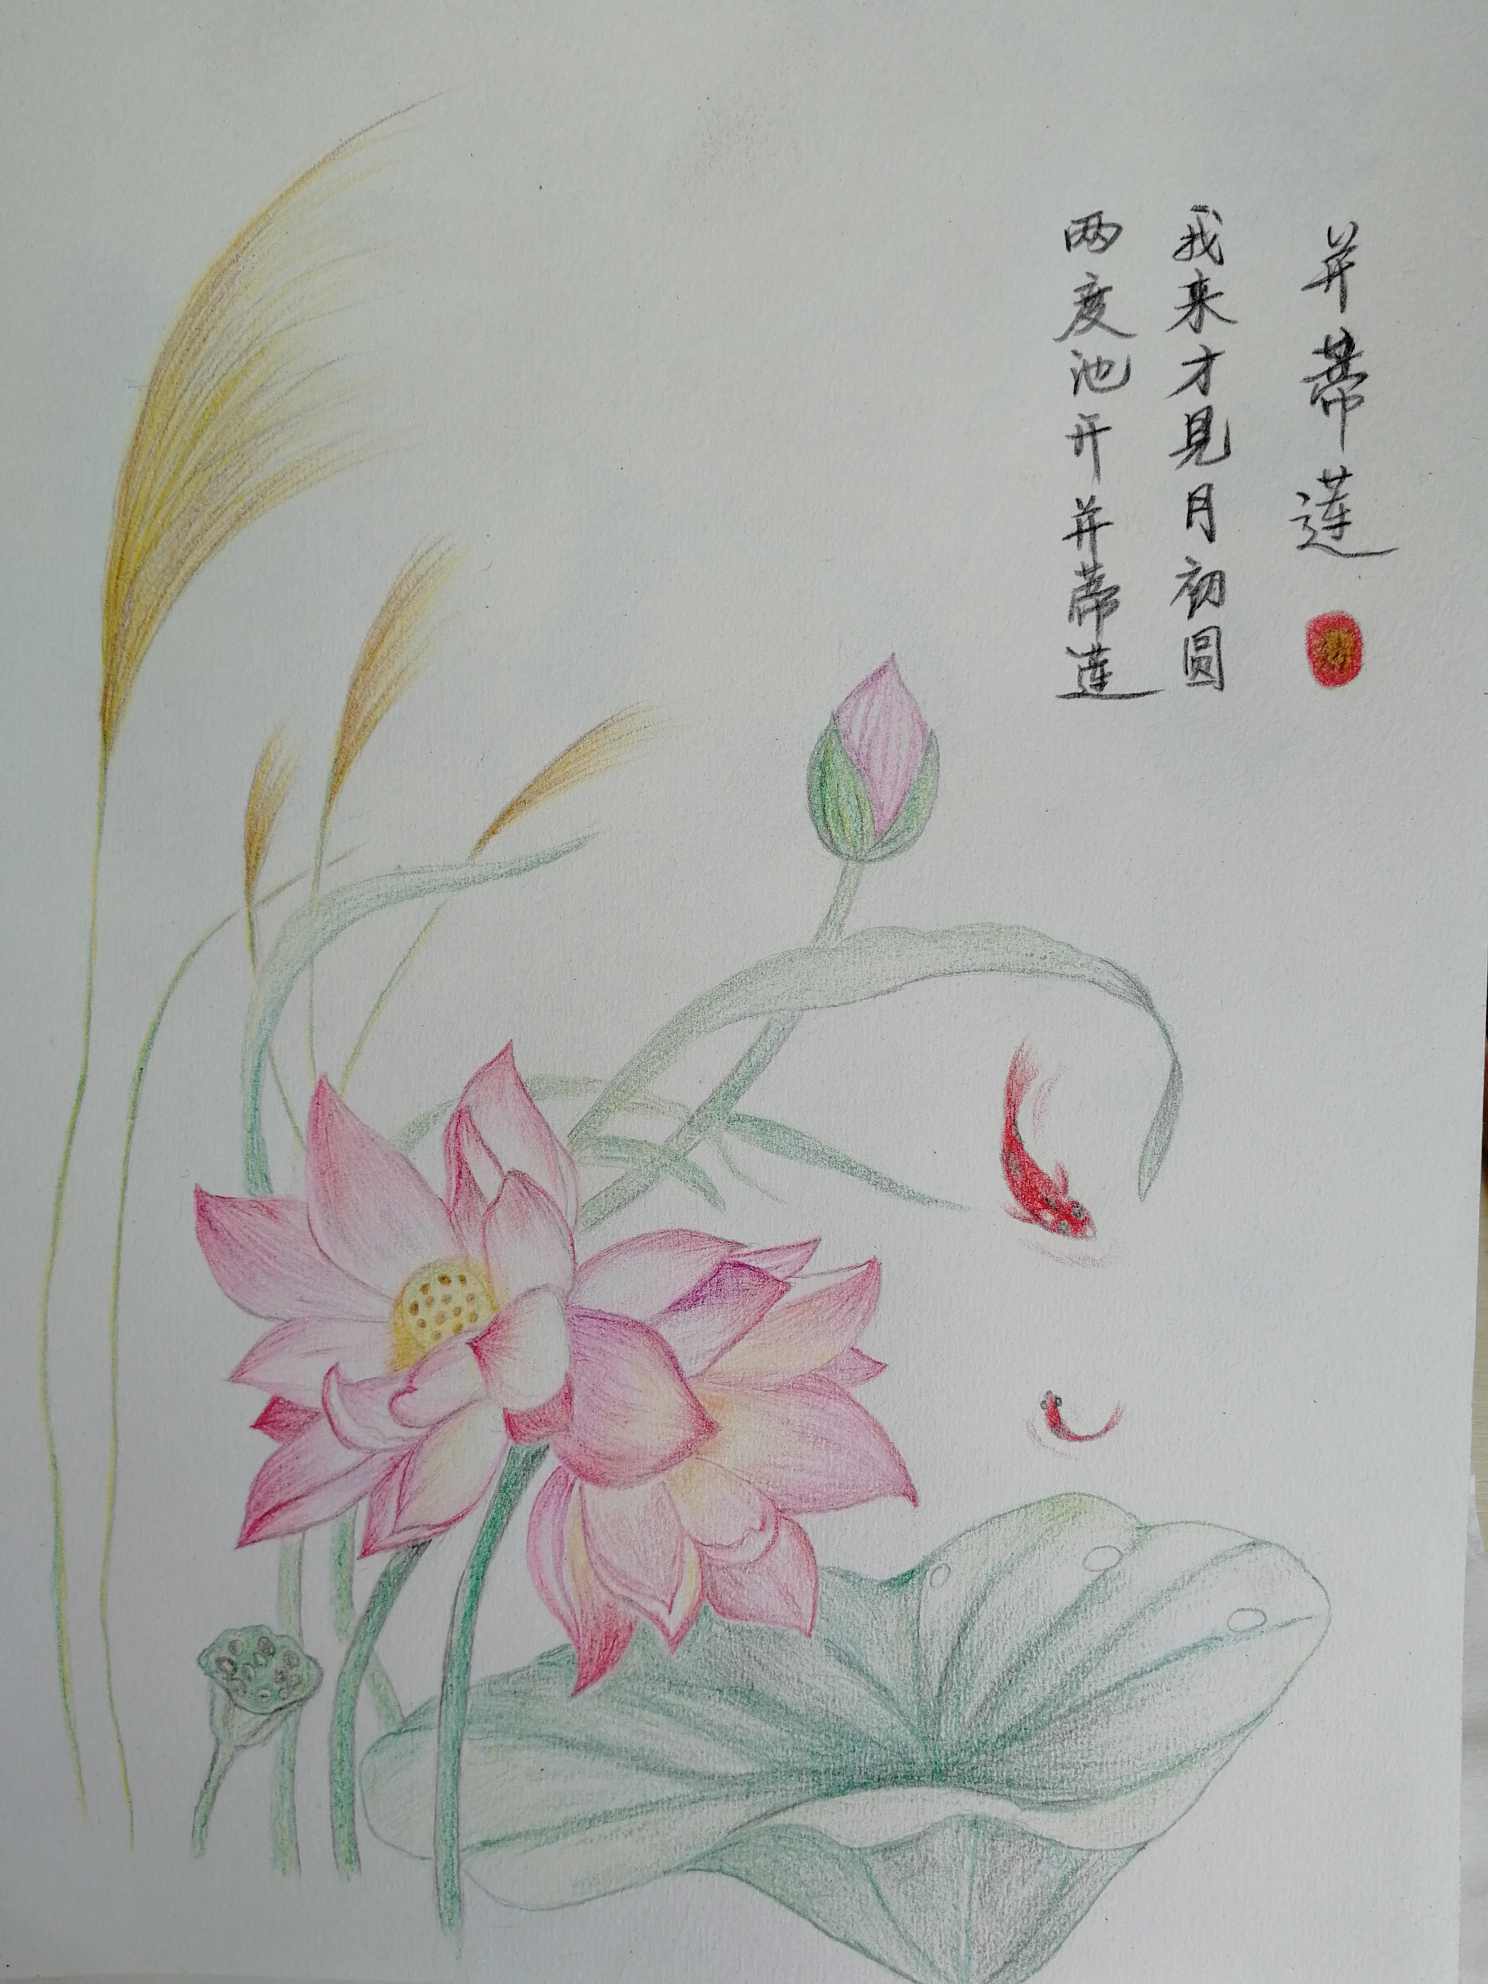 并蒂莲
我来才见月初圆
两度池开并蒂莲